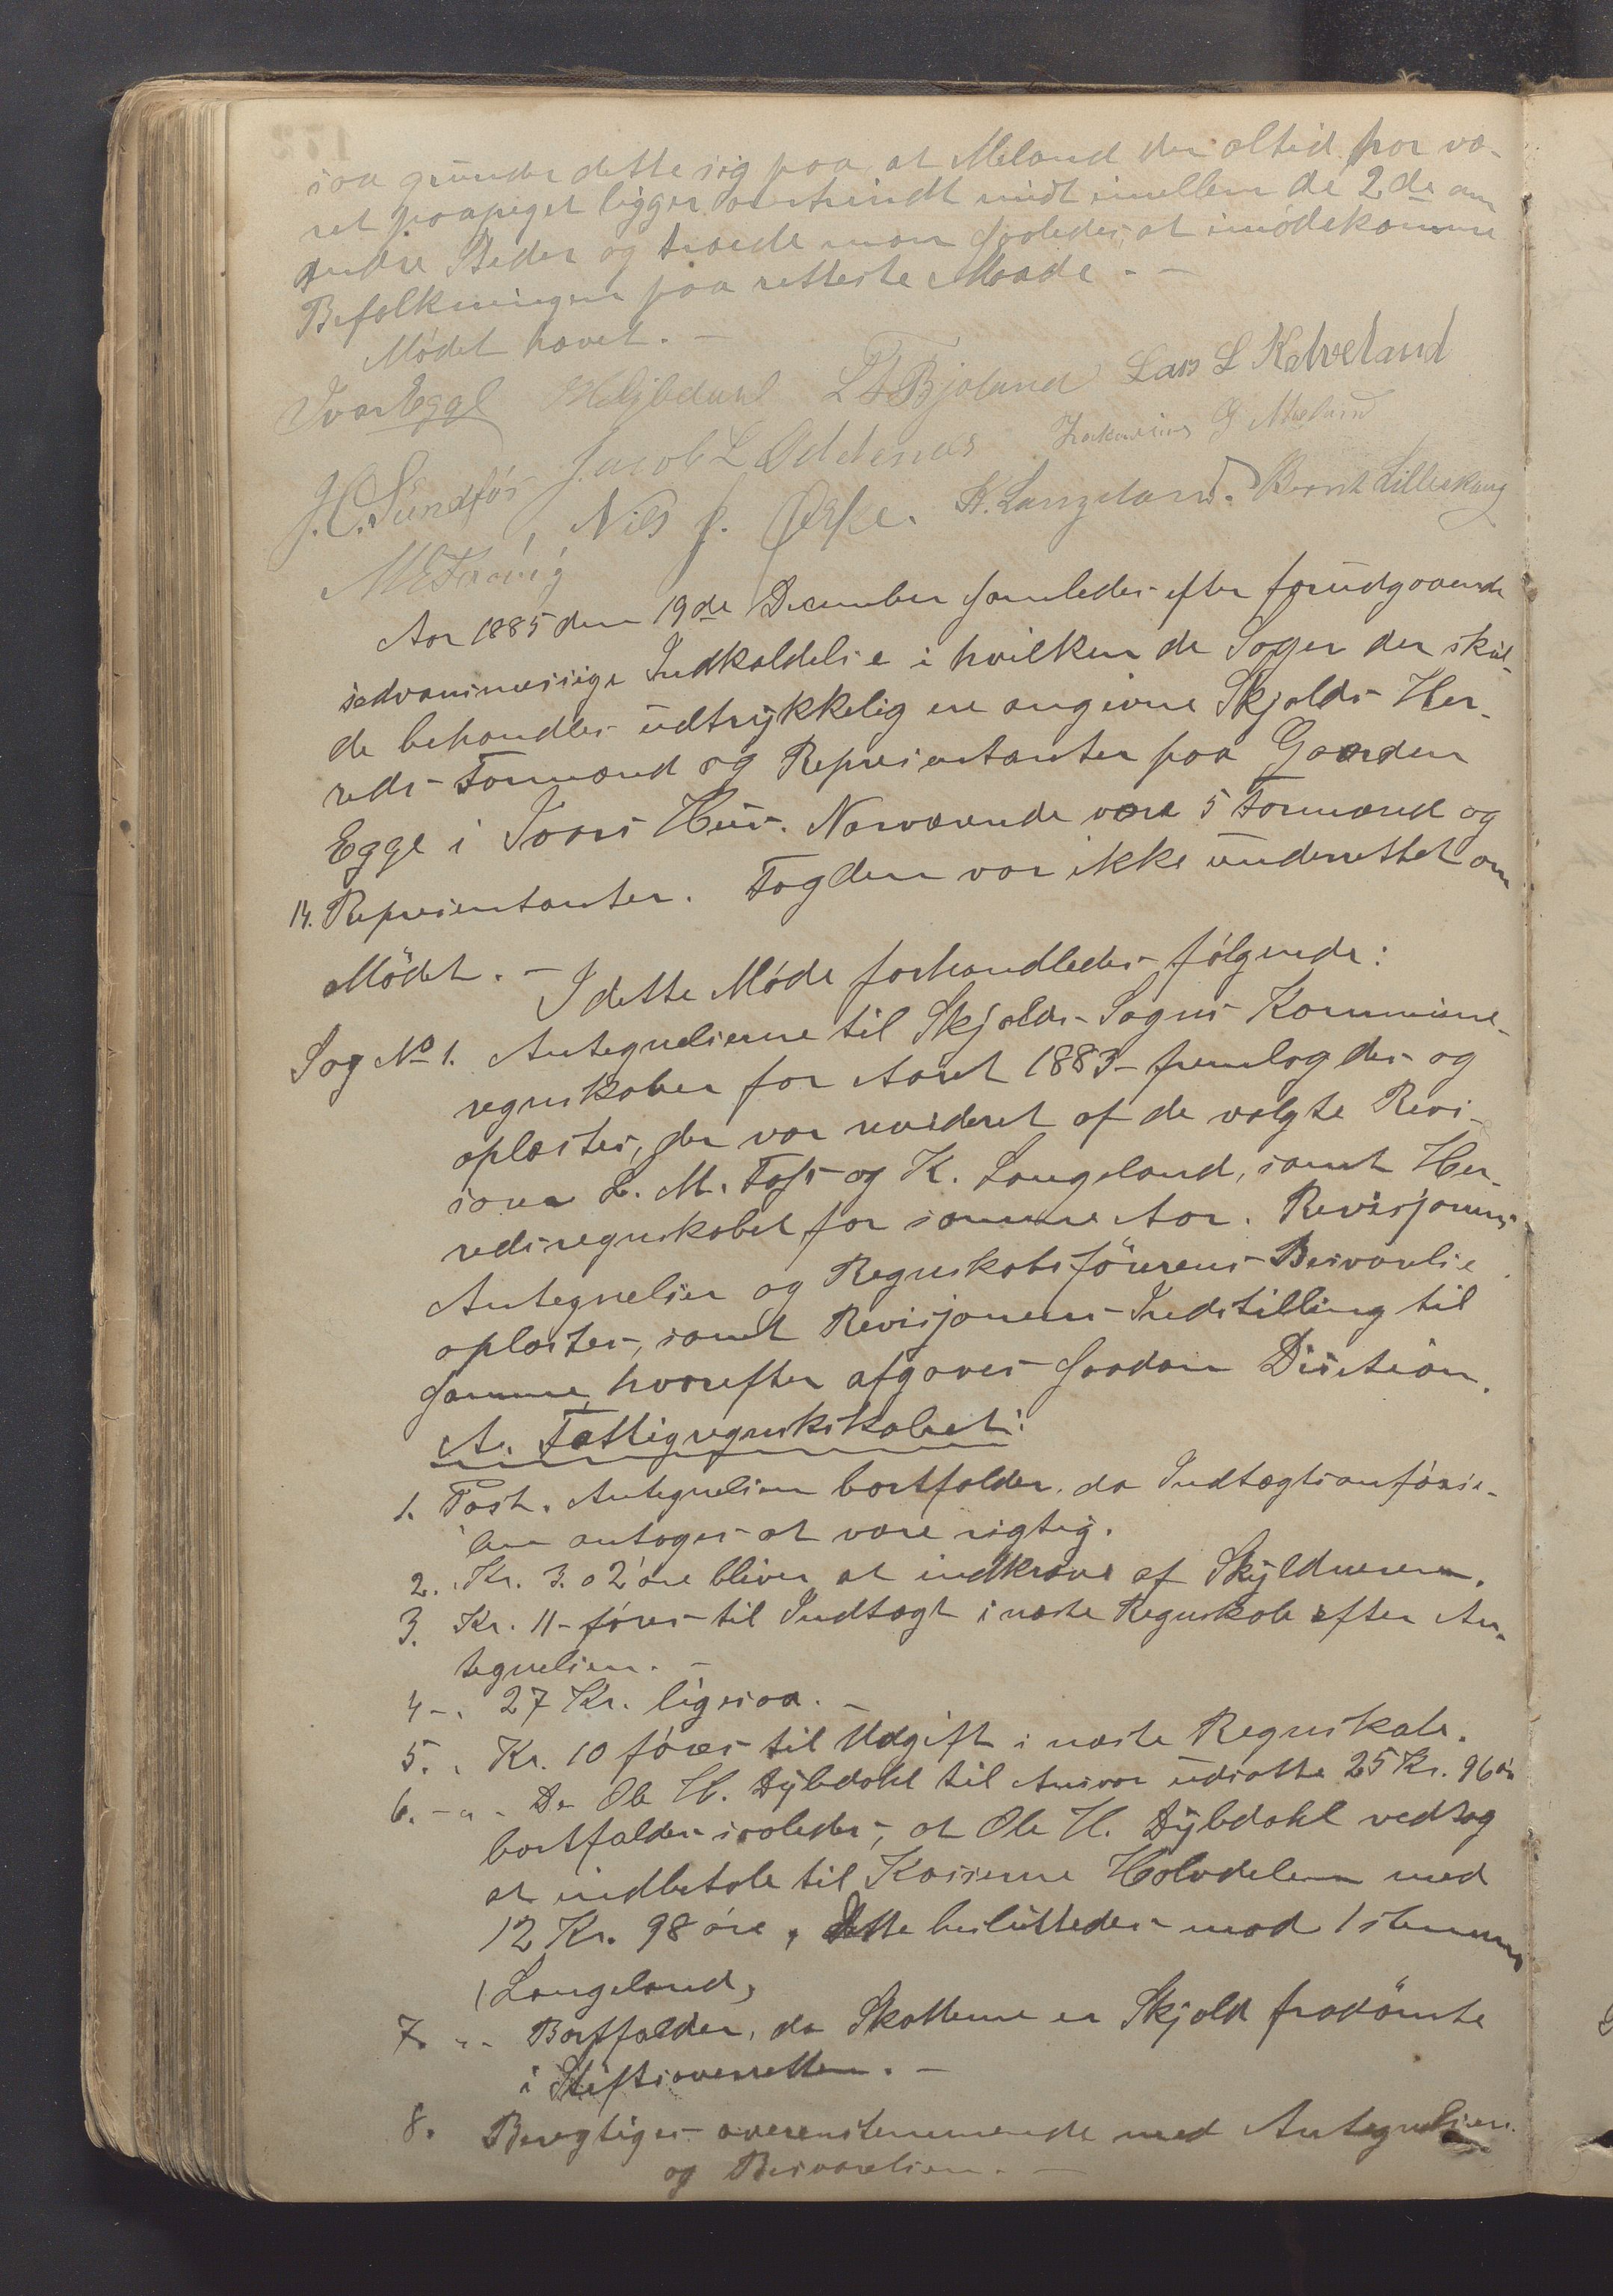 saa grunder dette sig paa, at Meland der altid har væ-
ret paapeget ligger omtrindt midt imellem de 2de an
andre Steder og troede man saaledes at imødekomme
Befolkningen paa retteste Maade. -
Mødet hævet. -
Ivar Egge Dybdahl L T Bjoland Lars L Kalveland
J. C. Sundfør Jacob L Oddenæs Zakarias G Meland
Nils J. Ørke. K. Langeland. Bernt Lilleskoug
M E Tersvig
Aar 1885 den 19de December samledes efter forudgaaende
sedvansmæssige Indkaldelse i hvilken de Sager der skul-
de behandles udtrykkelig ere angivne Skjolds Her-
reds Formænd og Repræsentanter paa Gaarden
Egge i Ivars Hus. Nærværende være 5 Formænd og
14. Repræsentanter. Fogden var ikke underrettet om
Mødet. -
I dette Møde forhandledes følgende:
Sag No 1. Antegnelserne til Skjolds Sogns Kommune-
regnskaber for Aaret 1883 fremlagdes og
oplæstes, der var revideret af de valgte Revi-
sorer L. M. Foss og K. Langeland, samt Her-
redsregnskabet for samme Aar. Revisjonens
Antegnelser og Regnskabsførerens Besvarelse
oplæstes, samt Revisjonens Indstilling til
samme, hvorefter afgaves saadan Disision.
A. Fattigregnskskabet:
1. Post. Antegnelsen bortfalder, da Indtægtsanførse-
len antages at være rigtig.
2. " Kr. 3.02 øre bliver at indkræve af Skyldneren.
3. Kr. 11 føres til Indtægt i næste Regnskab efter An-
tegnelsen. -
4 - " 27 Kr. ligesaa. -
5. " Kr. 10 føres til Udgift i næste Regnskab.
6. - " - De Ole H. Dybdahl til Ansvar udsatte 25 Kr. 96 ør
bortfalder saaledes, at Ole H. Dybdahl vedtog
at indbetale til Kasserne Halvdelen med
12 Kr. 98 øre, dette beslutedes mod 1 stemme
(Langeland)
7. " - Bortfalder, da Skatterne er Skjold fradømte
i Stiftsoverretten. -
8. Beregtiges overensstemmende med Antegnelsen
og Besvarelsen. -